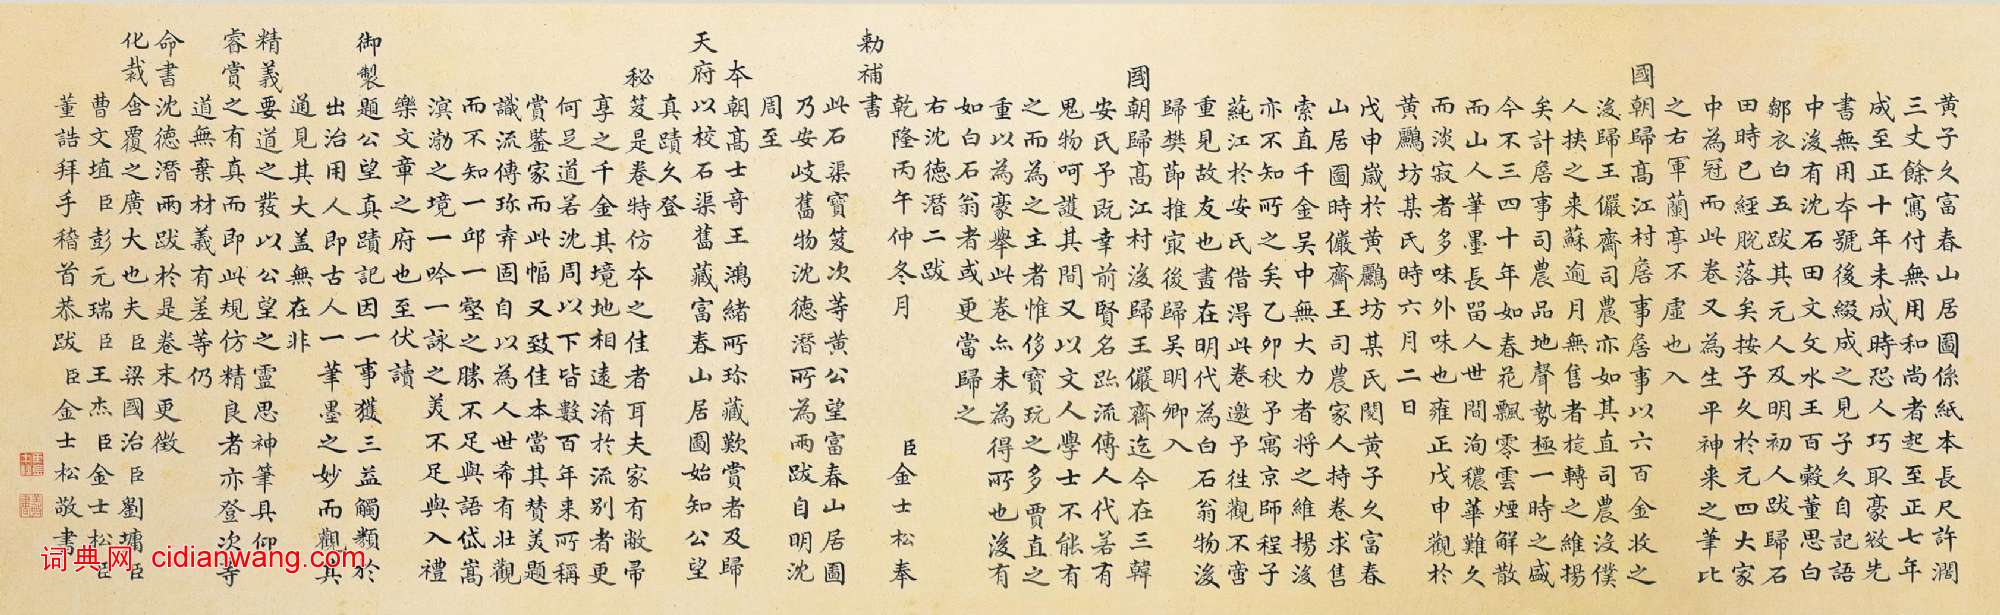 黃子久富春山居圖係紙本長尺許濶
三丈餘寫付無用和尚者起至正七年
成至正十年未成時恐人巧取豪敚先
書無用本號後綴成之見子久自記語
鄒衣白五跋其元人及明初人跋歸石
中後有沈石田文文水王百穀董思白
田時已經脫落矣按子久於元四大家
中為冠而此卷又為生平神来之筆比
之右軍蘭亭不虛也入
國朝歸髙江村詹事詹事以六百金收之
後歸王儼齋司農亦如其直司農沒僕
人挾之来蘇逾月無售者旋轉之維揚
矣計詹事司農品地聲勢極一時之盛
今不三四十年如春花飄零雲煙解散
而山人筆墨長留人世間洵穠華難久
而淡寂者多味外味也雍正戊申觀於
黃鸝坊某氏時六月二日
戊申嵗於黃鸝坊某氏閱黃子久富春
山居圖時儼齋王司農家人持卷求售
索直千金吴中無大力者將之維揚後
亦不知所之矣乙卯秋予寓京師程子
蒓江於安氏借得此卷邀予徃觀不啻
重見故友也畫在明代為白石翁物後
歸樊莭推家後歸吴明卿入
國朝歸髙江村後歸王儼齋迄今在三韓
安氏予既幸前賢名跡流傳人代若有
鬼物呵護其間又以文人學士不能有
之而為之主者惟侈寶玩之多賈直之
重以為豪舉此卷亦未為得所也後有
如白石翁者或更當歸之
右沈德潛二跋
乾隆丙午仲冬月 臣金士松奉
勅補書
此石渠寶笈次等黃公望富春山居圖
乃安岐舊物沈德潛所為兩跋自明沈
周至
本朝髙士奇王鴻緒所珎藏歎賞者及歸
天府以校石渠舊藏富春山居圖始知公望
真蹟久登
秘笈是卷特仿本之佳者耳夫家有敝帚
享之千金其境地相遠淆於流别者更
何足道若沈周以下皆數百年来所稱
賞鑒家而此幅又致佳本當其賛羙題
識流傳珎弆固自以為人世希有壮觀
而不知一邱一壑之勝不足與語岱嵩
溟渤之境一吟一詠之羙不足與入禮
樂文章之府也至伏讀
御製題公望真蹟記因一事獲三益觸類於
出治用人即古人一筆墨之妙而觀其
道見其大盖無在非
精義要道之發以公望之靈思神筆具仰
睿賞之有真而即此規仿精良者亦登次等
道無棄材義有差等仍
命書沈德潛兩跋於是卷末更徴
化裁含覆之廣大也夫臣梁國治臣劉墉臣
曹文埴臣彭元瑞臣王杰臣金士松臣
董誥拜手稽首恭跋 臣金士松敬書
词典网 cidianwang.com